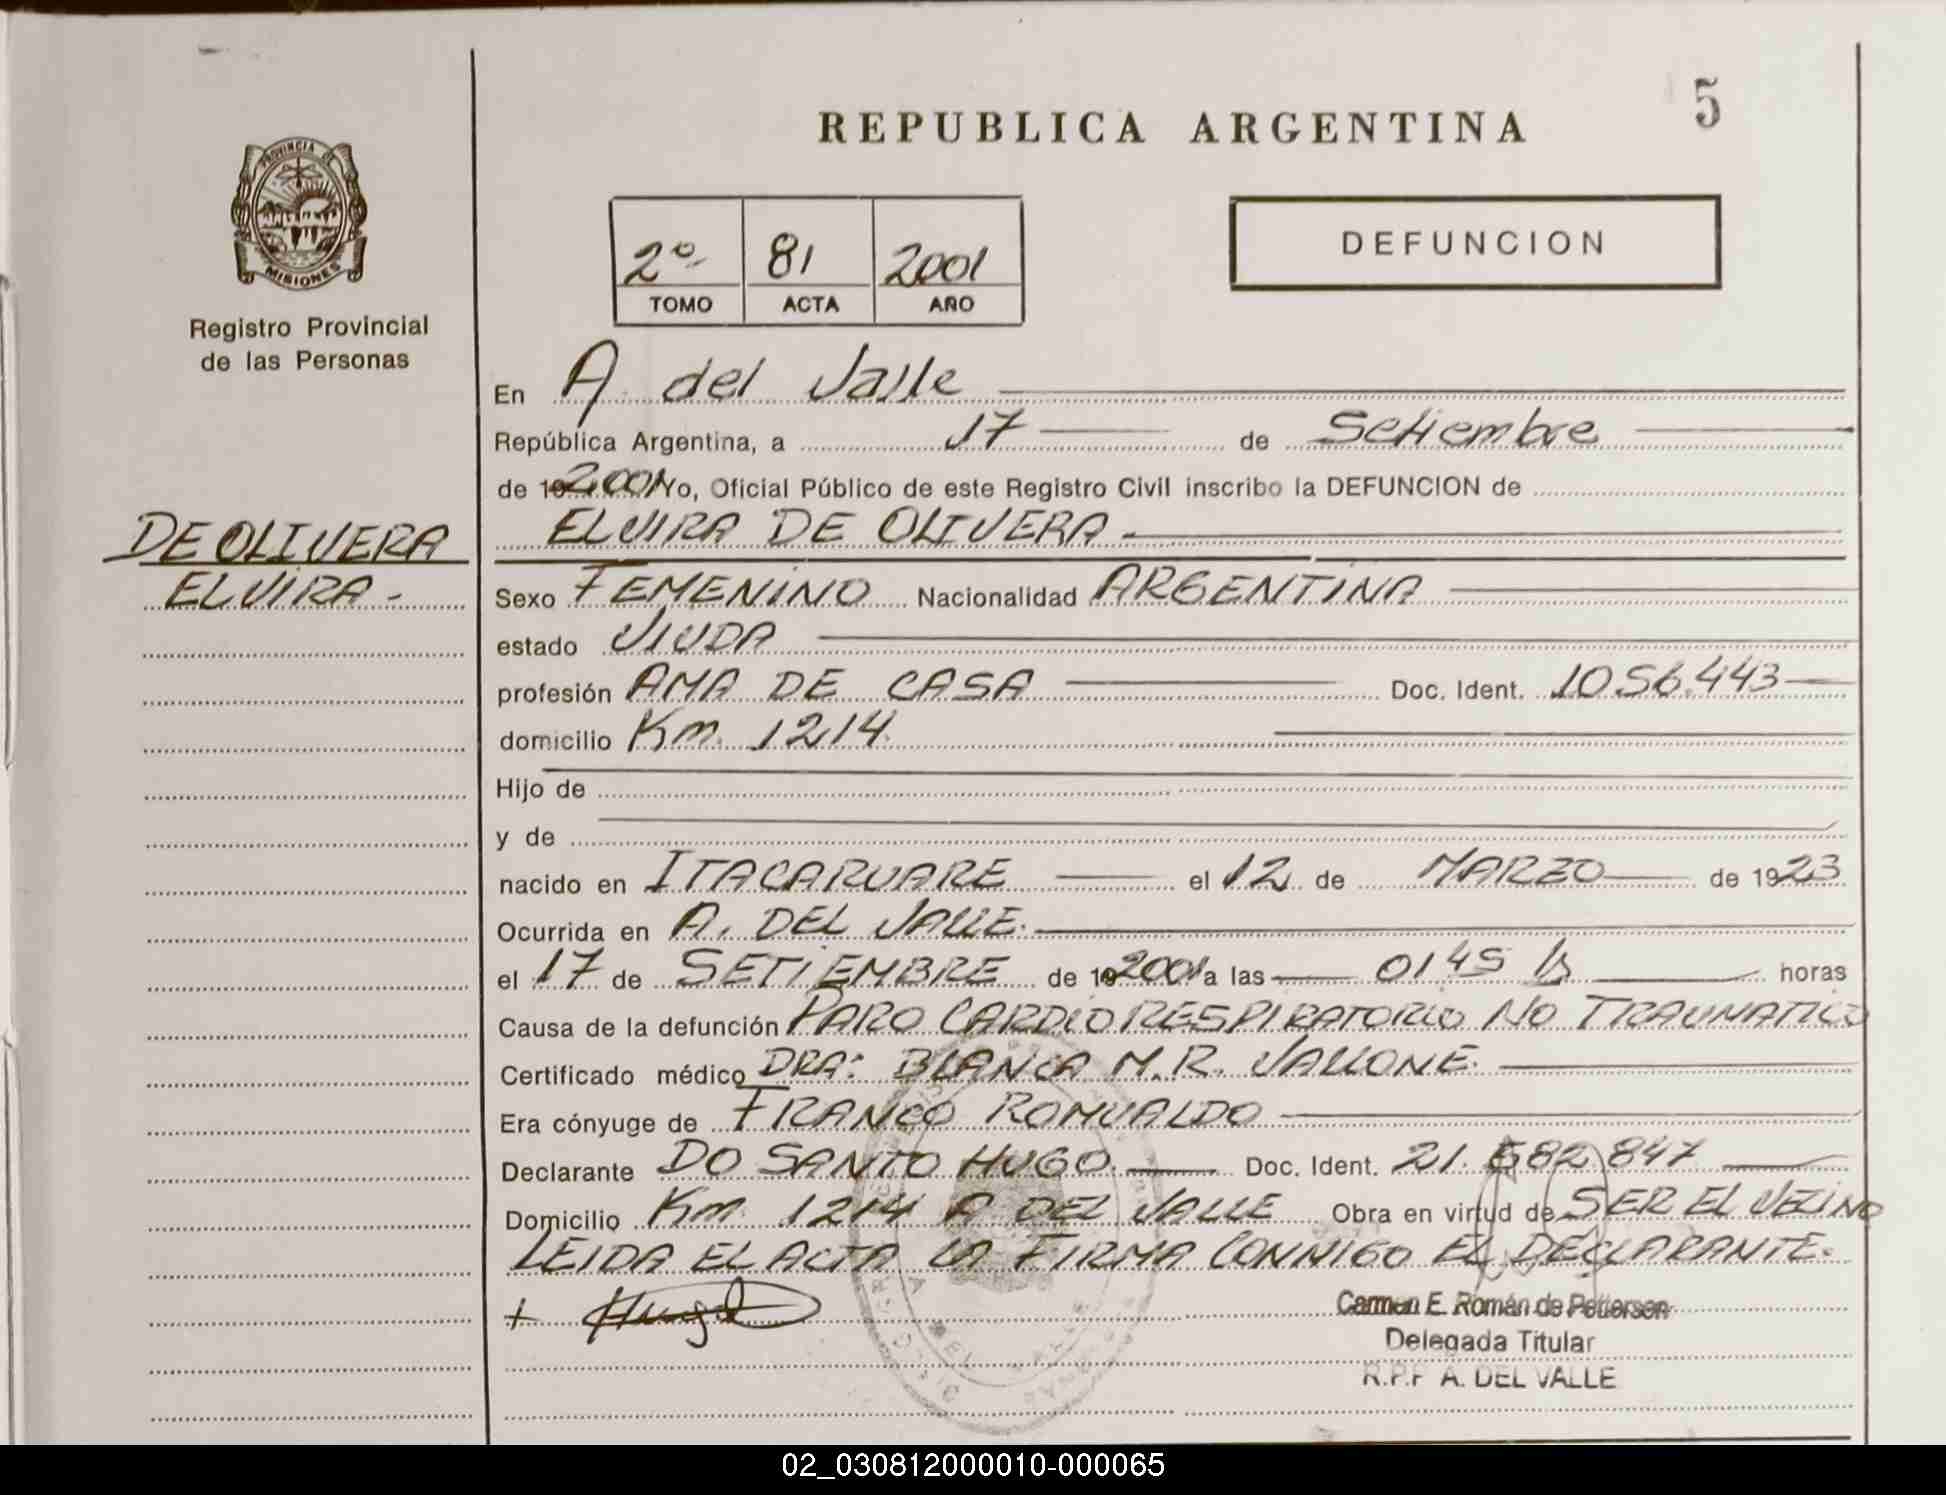 5
REPUBLICA ARGENTINA
PROVINCIA DE
MISIONES
Registro Provincial
de las Personas
2º 81 2001
TOMO ACTA AÑO
DEFUNCION
En A. del Valle
República Argentina, a 17 de Setiembre
de 2001 Yo, Oficial Público de este Registro Civil inscribo la DEFUNCION de
DE OLIVERA
ELVIRA DE OLIVERA
ELVIRA -
Sexo FEMENINO Nacionalidad ARGENTINA
estado VIUDA
profesión AMA DE CASA Doc. Ident. 1056.443
domicilio Km. 1214
Hijo de
y de
nacido en ITACARUARE el 12 de MARZO de 1923
Ocurrida en A. DEL VALLE.
el 17 de SETIEMBRE de 2001 a las 01 45 hs horas
Causa de la defunción PARO CARDIORESPIRATORIO NO TRAUMATICO
Certificado médico DRA: BLANCA M.R. VALLONE.
Era cónyuge de FRANCO ROMUALDO
Declarante DO SANTO HUGO. Doc. Ident. 21.682.847
Domicilio Km. 1214 A DEL VALLE Obra en virtud de SER EL VECINO
LEIDA EL ACTA LA FIRMA CONMIGO EL DECLARANTE.
Carmen E. Román de Pettersen
Delegada Titular
R.P.P A. DEL VALLE
02_030812000010-000065